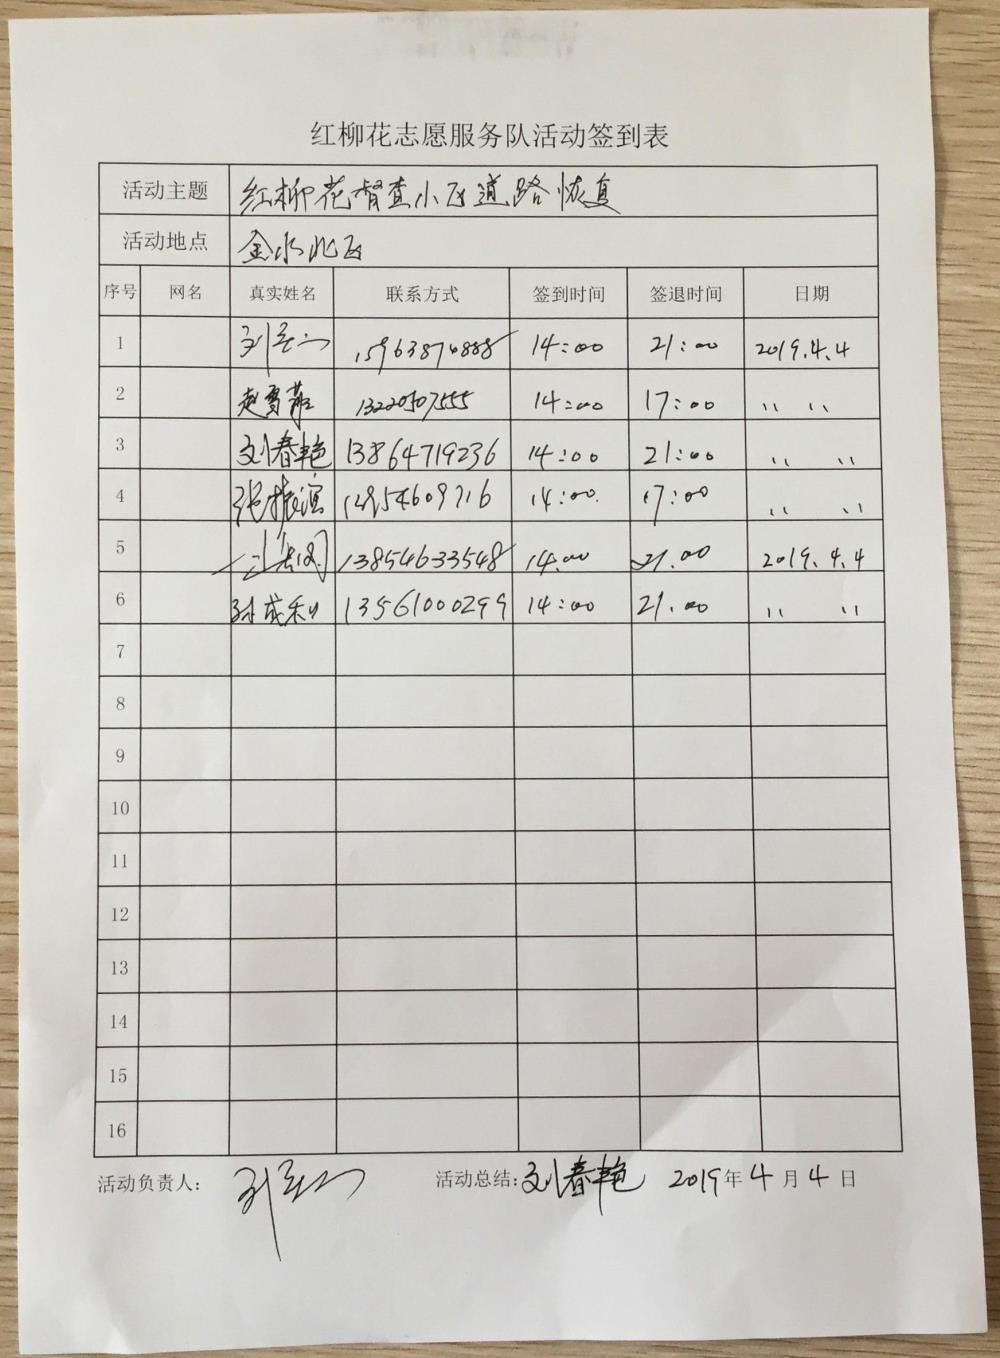 红柳花志愿服务队活动签到表
活动主题 红柳花督查小区道路恢复
活动地点 金水北区
序号 网名 真实姓名 联系方式 签到时间 签退时间 日期
1 15963870888 14:00 21:00 2019.4.4
2 赵雪莊 13220507555 14:00 17:00 〃 〃
3 刘春艳 13864719236 14:00 21:00 〃 〃
4 张振滨 14:00 17:00 〃 〃
5 13854633548 14.00 21.00 2019.4.4
6 孙成利 13561000299 14:00 21.00 〃 〃
7
8
9
10
11
12
13
14
15
16
活动负责人: 活动总结: 刘春艳 2019年4月4日